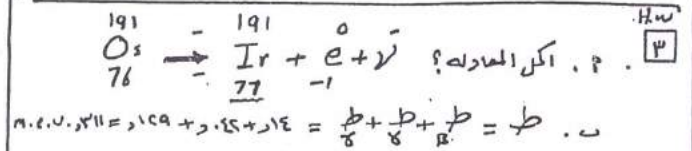 H.W
٣ . أ . اكمل المعادله؟ ¹⁹¹₇₆Os → ¹⁹¹₇₇Ir + ⁰₋₁e + ν̄
ب . ط = ط_B + ط_γ + ط_γ = ,١٤ + ,٠٤٢ + ,١٢٩ = ,٣١١ m.e.v.